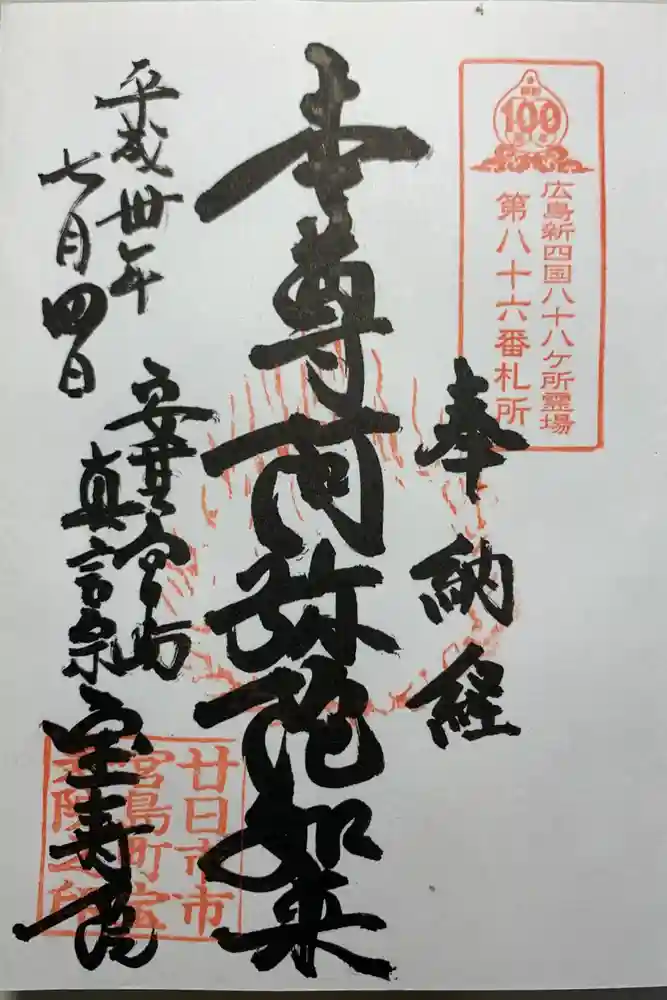 100
広島新四国八十八ケ所霊場
第八十六番札所
奉納経
本尊阿弥陀如来
平成卅年
七月四日
安芸宮島
真言宗
宝寿院
廿日市市
宮島町宝